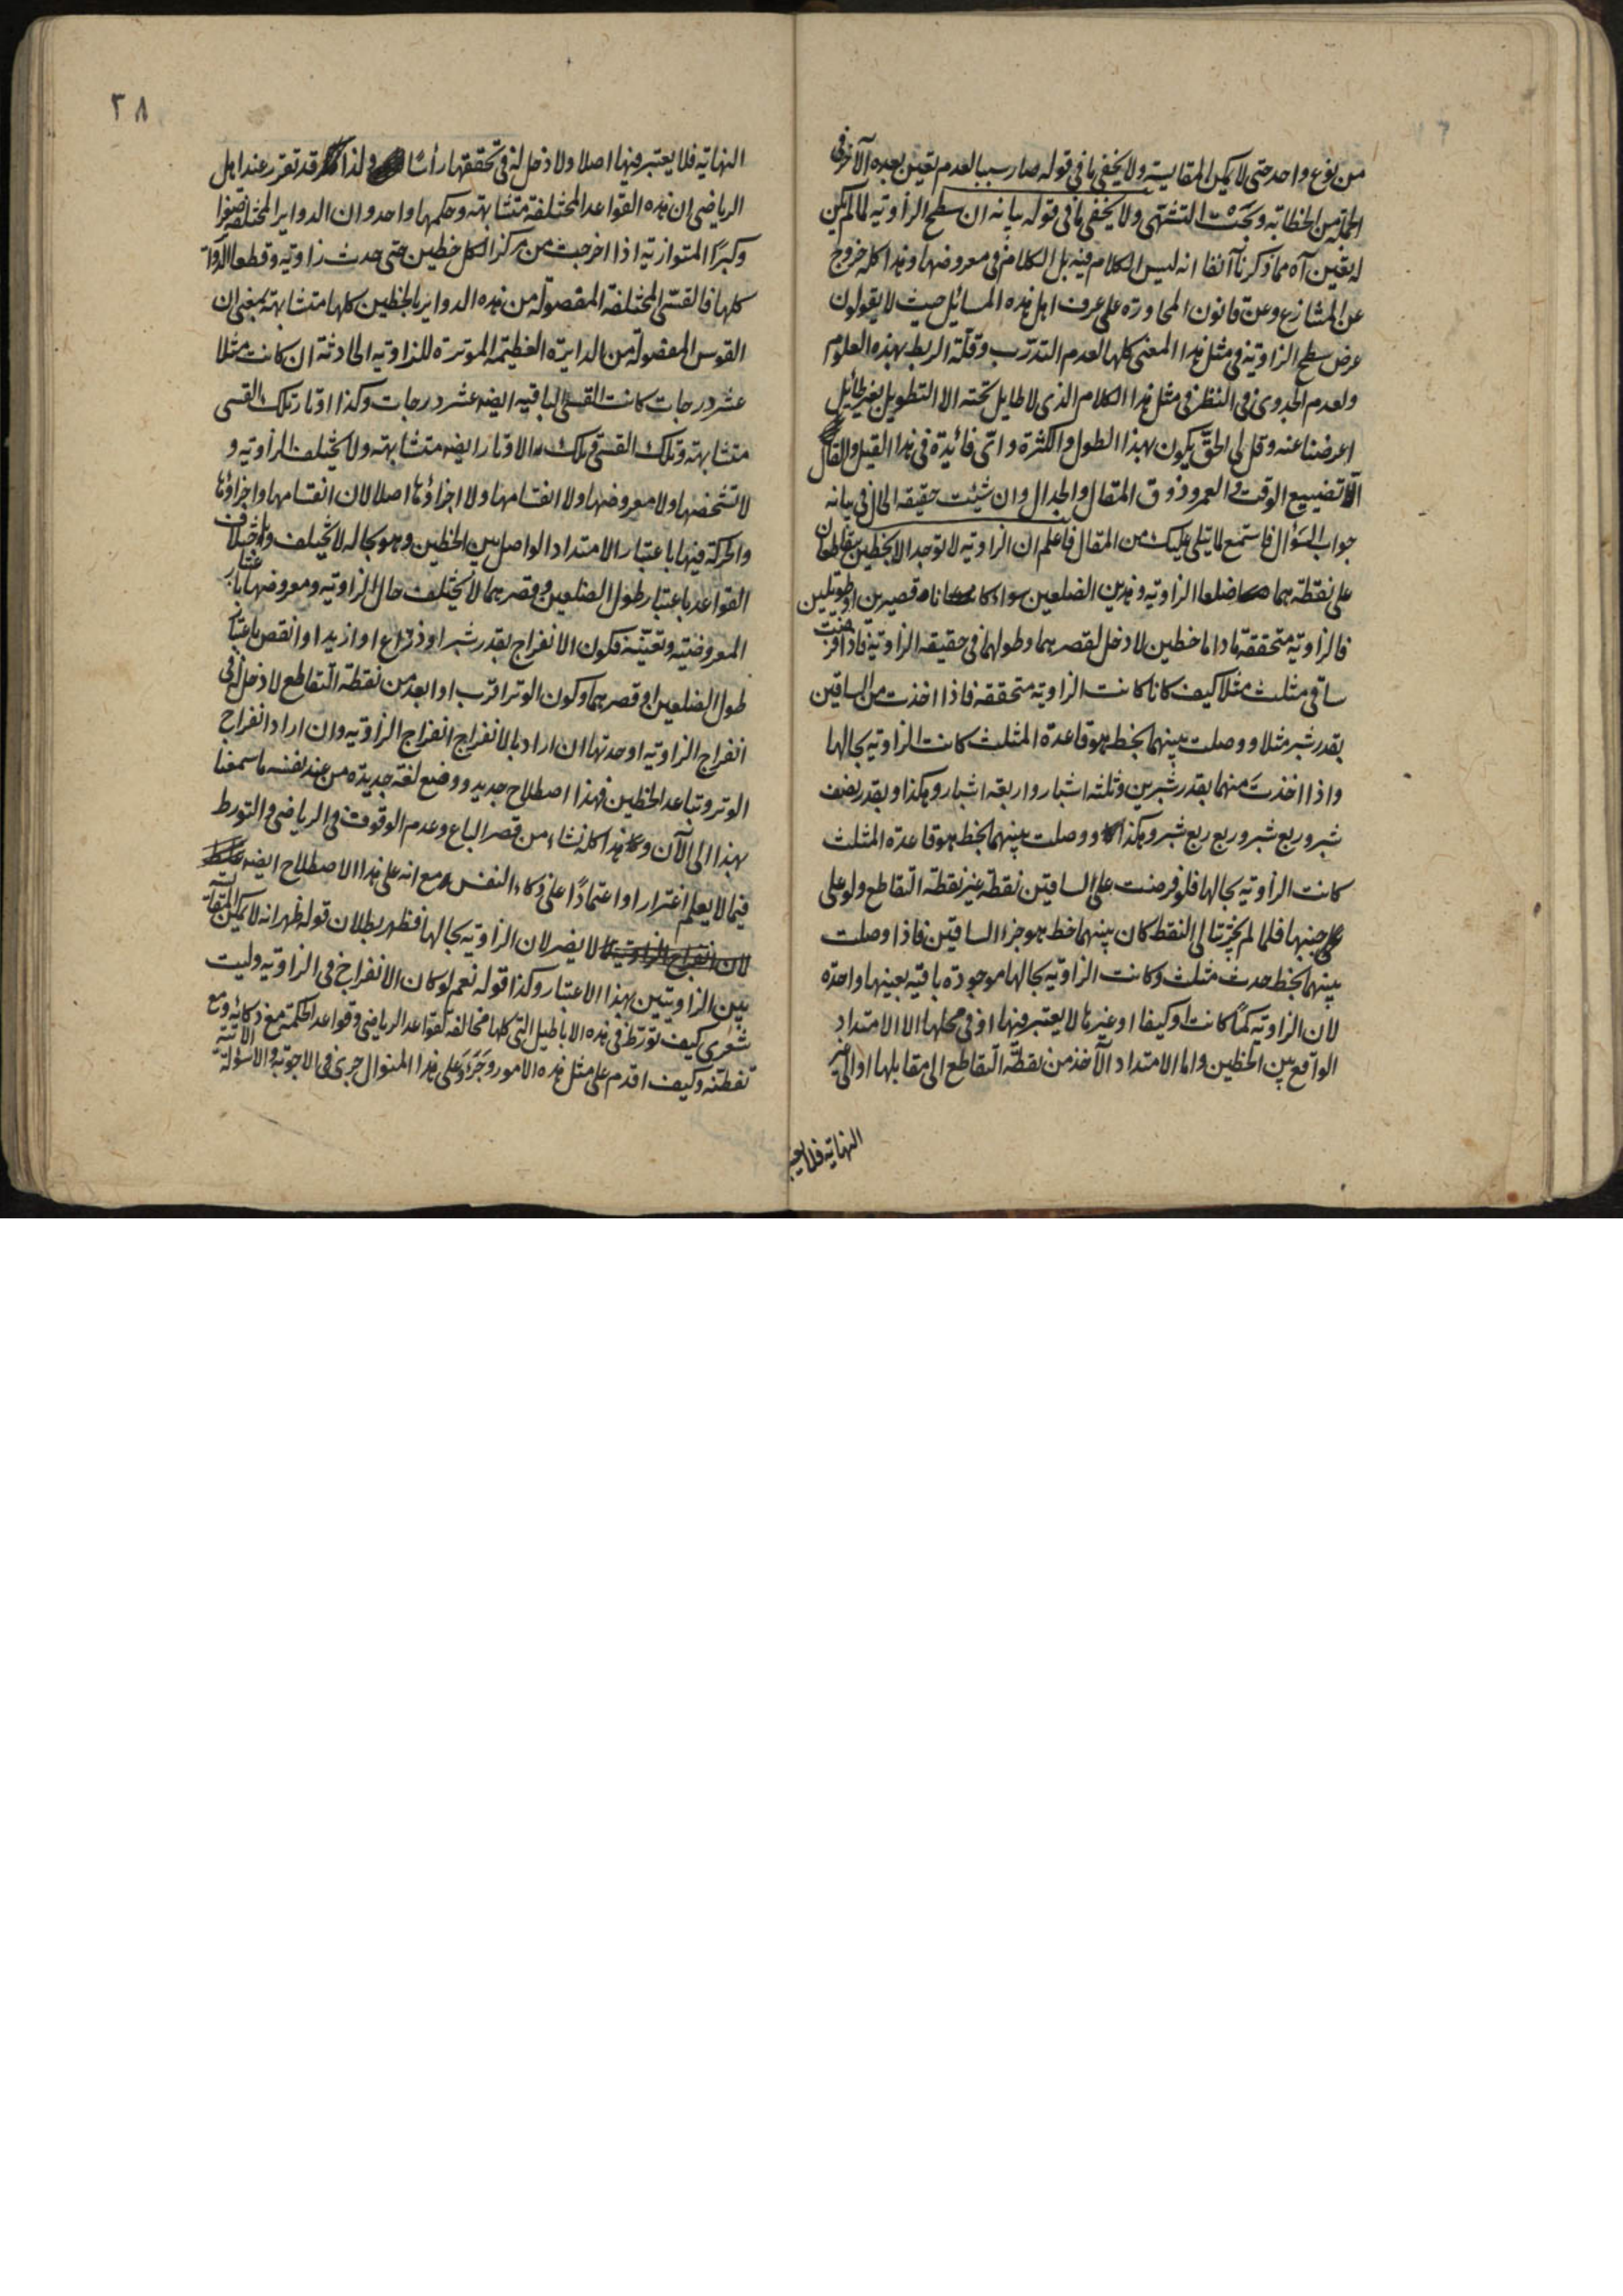 من نوع واحد حتى لا يمكن المقايسة ولا يخفى ما فى قوله صار سببا لعدم تعين بعده الآخر فى
الجملة من الخطابة وبحث التشهى ولا يخفى ما فى قوله بيانه ان سطح الزاوية لما لم يكن
له تعين آه مما ذكرنا آنفا انه ليس الكلام فيه بل الكلام فى معروضها وهذا كله خروج
عن المشارع وعن قانون المحاورة على عرف اهل هذه المسائل حيث لا يقولون
عرض سطح الزاوية فى مثل هذا المعنى كلها لعدم التدرب وقلة الربط بهذه العلوم
ولعدم الجدوى فى النظر فى مثل هذا الكلام الذى لا طايل تحته الا التطويل بغير طائل
اعرضنا عنه وقل لى الحق يكون بهذا الطول والكثرة واى فائدة فى هذا القيل والقال
الا تضييع الوقت والعمر وذوق المقال والجدال وان شئت حقيقة الحال فى بيانه
جواب السؤال فاستمع لما يتلى عليك من المقال فاعلم ان الزاوية لا توجد الا بخطين يتقاطعان
على نقطة هما ضلعا الزاوية وهذين الضلعين سواء كانا قصيرين او طويلين
فالزاوية متحققة ما داما خطين لا دخل لقصرهما وطولهما فى حقيقة الزاوية فاذا فرضت
ساقى مثلث مثلا كيف كانا كانت الزاوية متحققة فاذا اخذت من الساقين
بقدر شبر مثلا ووصلت بينهما بخط هو قاعدة المثلث كانت الزاوية بحالها
واذا اخذت منهما بقدر شبرين وثلثة اشبار واربعة اشبار وهكذا وبقدر نصف
شبر وربع شبر وربع ربع شبر وهكذا ووصلت بينهما بخط هو قاعدة المثلث
كانت الزاوية بحالها فلو فرضت على الساقين نقطة غير نقطة التقاطع ولو على
جنبها فلما لم يتجزيا الى النقط كان بينهما خط هو جزء الساقين فاذا وصلت
بينهما بخط حدث مثلث وكانت الزاوية بحالها موجودة باقية بعينها واحدة
لان الزاوية كمًا كانت او كيفا او غيرها لا يعتبر فيها او فى محلها الا الامتداد
الواقع بين الخطين واما الامتداد الآخذ من نقطة التقاطع الى مقابلها او الى غير
النهاية فلا يعتبر
٣٨
النهاية فلا يعتبر فيها اصلا ولا دخل له فى تحققها رأسا ولذا قد تقرر عند اهل
الرياضى ان هذه القواعد المختلفة متشابهة وحكمها واحد وان الدواير المختلفة صغرا
وكبرًا المتوازية اذا اخرجت من مركز الكل خطين حتى حدث زاوية وقطعا الدوائر
كلها فالقسى المختلفة المفصولة من هذه الدواير بالخطين كلها متشابهة بمعنى ان
القوس المفصولة من الدائرة العظيمة الموترة للزاوية الحادثة ان كانت مثلا
عشر درجات كانت القسى الباقية ايضه عشر درجات وكذا اوتار تلك القسى
متشابهة وتلك القسى وتلك الاوتار ايضه متشابهة ولا يختلف الزاوية و
لا تشخصها ولا معروضها ولا انقسامها ولا اجزاؤها اصلا لان انقسامها واجزاؤها
والحركة فيها باعتبار الامتداد الواصل بين الخطين وهو بحاله لا يختلف واختلاف
القواعد باعتبار طول الضلعين وقصرهما لا يختلف حال الزاوية ومعروضها باعتبار
المعروضية وتعينه فكون الانفراج بقدر شبر او ذراع او ازيد او انقص باعتبار
طول الضلعين او قصرهما وكون الوتر اقرب او ابعد من نقطة التقاطع لا دخل له فى
انفراج الزاوية او حدتها ان اراد بالانفراج انفراج الزاوية وان اراد انفراج
الوتر وتباعد الخطين فهذا اصطلاح جديد ووضع لغة جديدة من عند نفسه ما سمعنا
بهذا الى الآن وهذا كله نشاء من قصر الباع وعدم الوقوف فى الرياضى والتورط
فيما لا يعلم اغترارا واعتمادًا على ذكاء النفس مع انه على هذا الاصطلاح ايضه غلط
لان انفراج الزاوية لا يضر لان الزاوية بحالها فظهر بطلان قوله ظهر انه لا يمكن المقايسة
بين الزاويتين بهذا الاعتبار وكذا قوله نعم لو كان الانفراج فى الزاوية وليت
شعرى كيف تورط فى هذه الاباطيل التى كلها مخالفة لقواعد الرياضى وقواعد الحكمة مع ذكائه ومع
تفطنه وكيف اقدم على مثل هذه الامور وجرؤ وعلى هذا المنوال جرى فى الاجوبة والاسؤلة الآتية